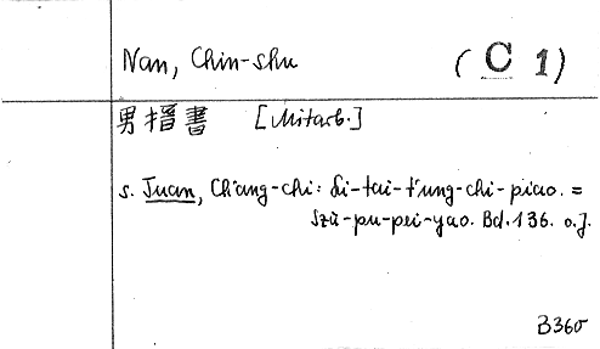 Nan, Chin-shu (C 1)
男搢書 [Mitarb.]
s. Juan, Ch'ang-chi: Li-tai-t'ung-chi-piao. =
Szŭ-pu-pei-yao. Bd. 136. o.J.
B360